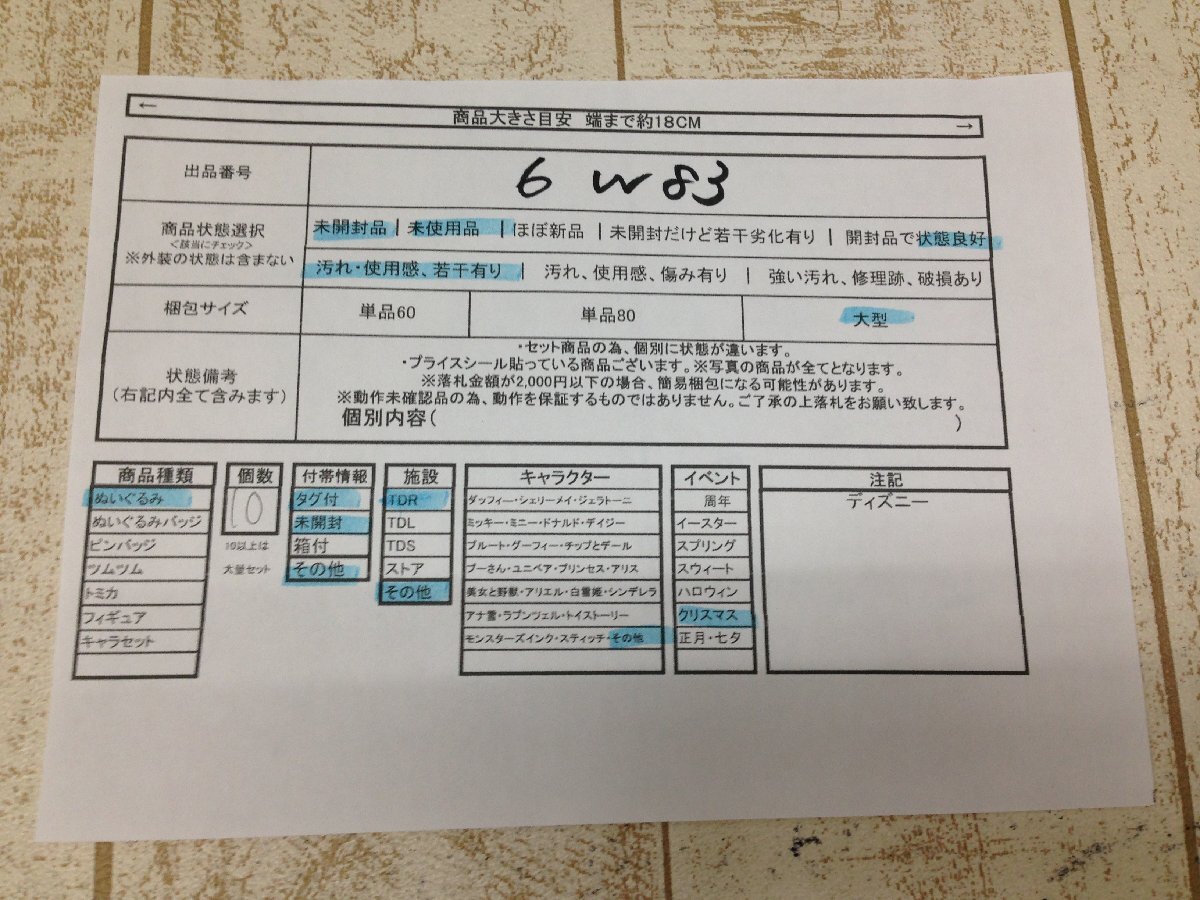 ← 商品大きさ目安 端まで約18CM →
出品番号 6 W83
商品状態選択
<該当にチェック>
※外装の状態は含まない
未開封品 | 未使用品 | ほぼ新品 | 未開封だけど若干劣化有り | 開封品で状態良好
汚れ・使用感、若干有り | 汚れ、使用感、傷み有り | 強い汚れ、修理跡、破損あり
梱包サイズ 単品60 単品80 大型
状態備考
(右記内全て含みます)
・セット商品の為、個別に状態が違います。
・プライスシール貼っている商品ございます。※写真の商品が全てとなります。
※落札金額が2,000円以下の場合、簡易梱包になる可能性があります。
※動作未確認品の為、動作を保証するものではありません。ご了承の上落札をお願い致します。
個別内容( )
商品種類
ぬいぐるみ
ぬいぐるみバッジ
ピンバッジ
ツムツム
トミカ
フィギュア
キャラセット
個数
10
10以上は
大量セット
付帯情報
タグ付
未開封
箱付
その他
施設
TDR
TDL
TDS
ストア
その他
キャラクター
ダッフィー・シェリーメイ・ジェラトーニ
ミッキー・ミニー・ドナルド・デイジー
プルート・グーフィー・チップとデール
プーさん・ユニベア・プリンセス・アリス
美女と野獣・アリエル・白雪姫・シンデレラ
アナ雪・ラプンツェル・トイストーリー
モンスターズインク・スティッチ・その他
イベント
周年
イースター
スプリング
スウィート
ハロウィン
クリスマス
正月・七夕
注記
ディズニー